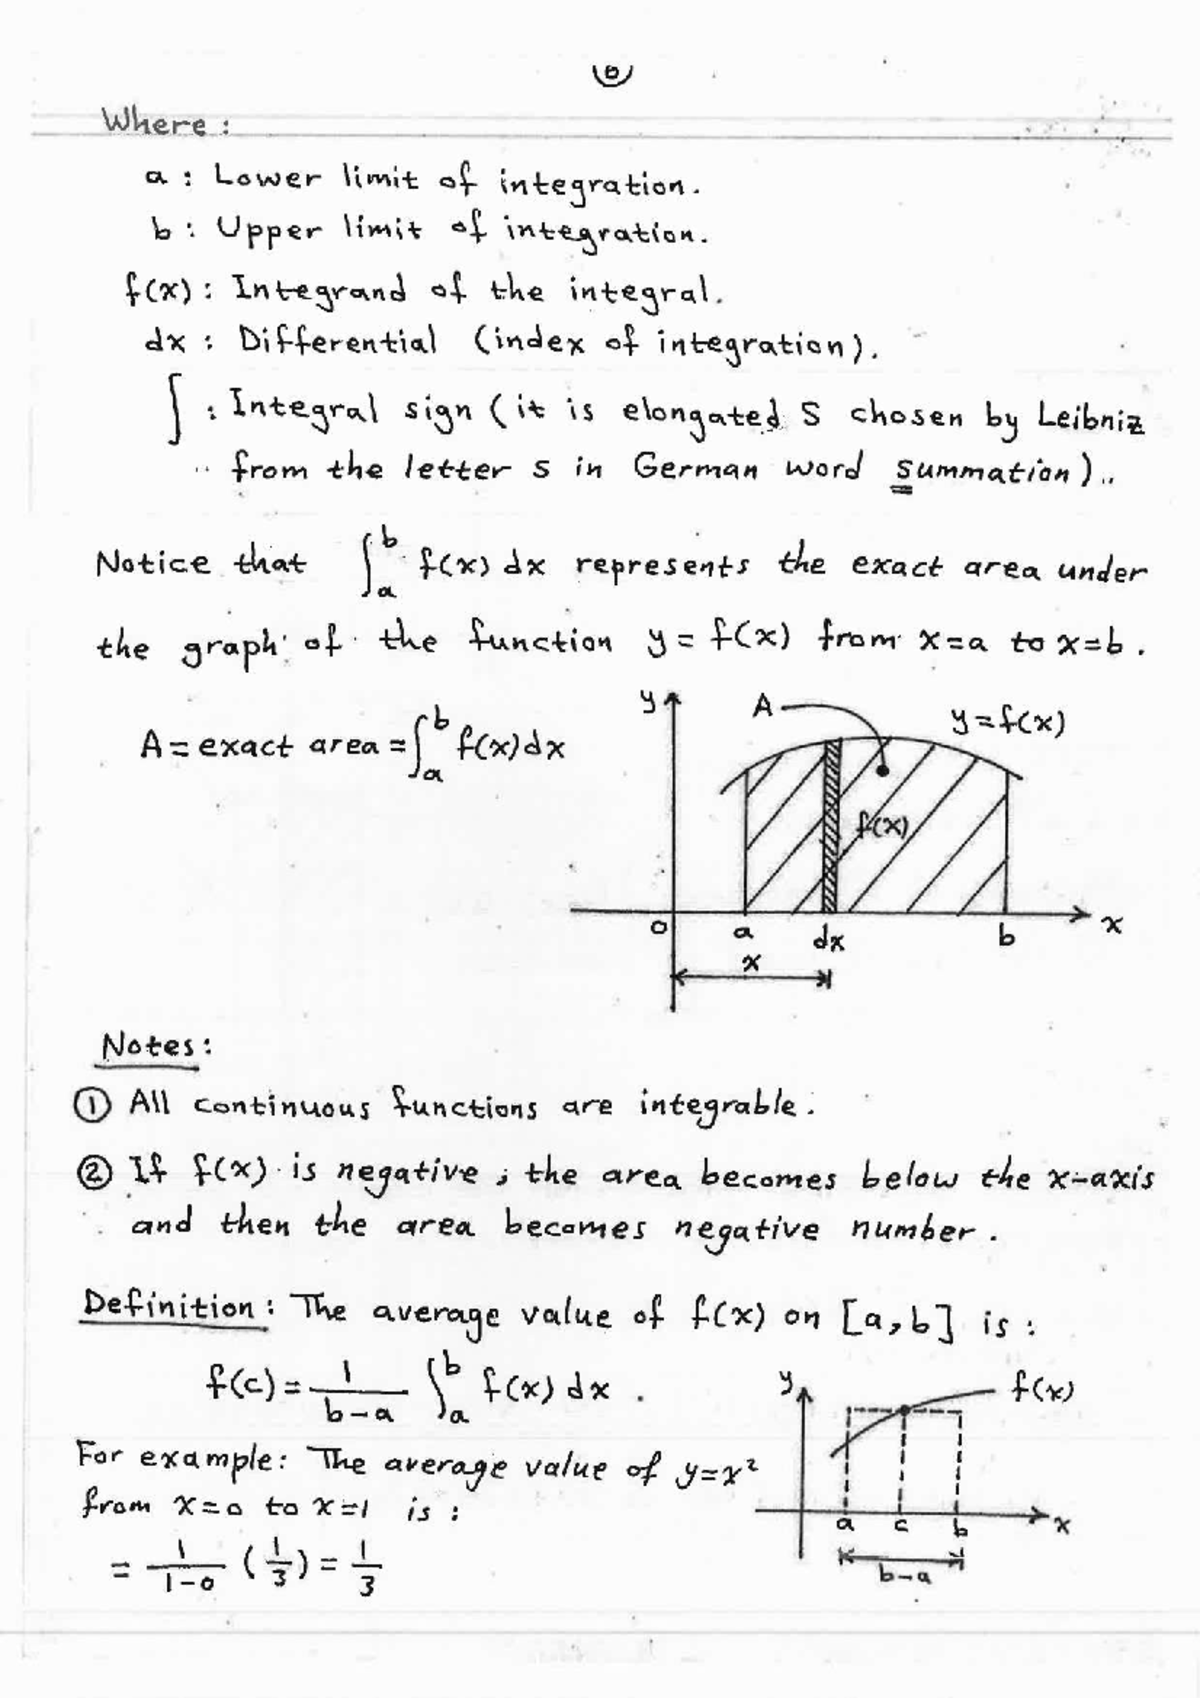 Where :
a : Lower limit of integration.
b : Upper limit of integration.
f(x) : Integrand of the integral.
dx : Differential (index of integration).
∫ : Integral sign (it is elongated S chosen by Leibniz
from the letter s in German word summation)..
Notice that ∫_a^b f(x) dx represents the exact area under
the graph of the function y = f(x) from x=a to x=b.
A = exact area = ∫_a^b f(x) dx
y
A
y = f(x)
f(x)
0 a dx b x
x
Notes :
① All continuous functions are integrable.
② If f(x) is negative ; the area becomes below the x-axis
and then the area becomes negative number.
Definition : The average value of f(x) on [a,b] is :
f(c) = 1/(b-a) ∫_a^b f(x) dx .
y f(x)
For example: The average value of y=x²
from x=0 to x=1 is :
a c b x
= 1/(1-0) (1/3) = 1/3
b-a